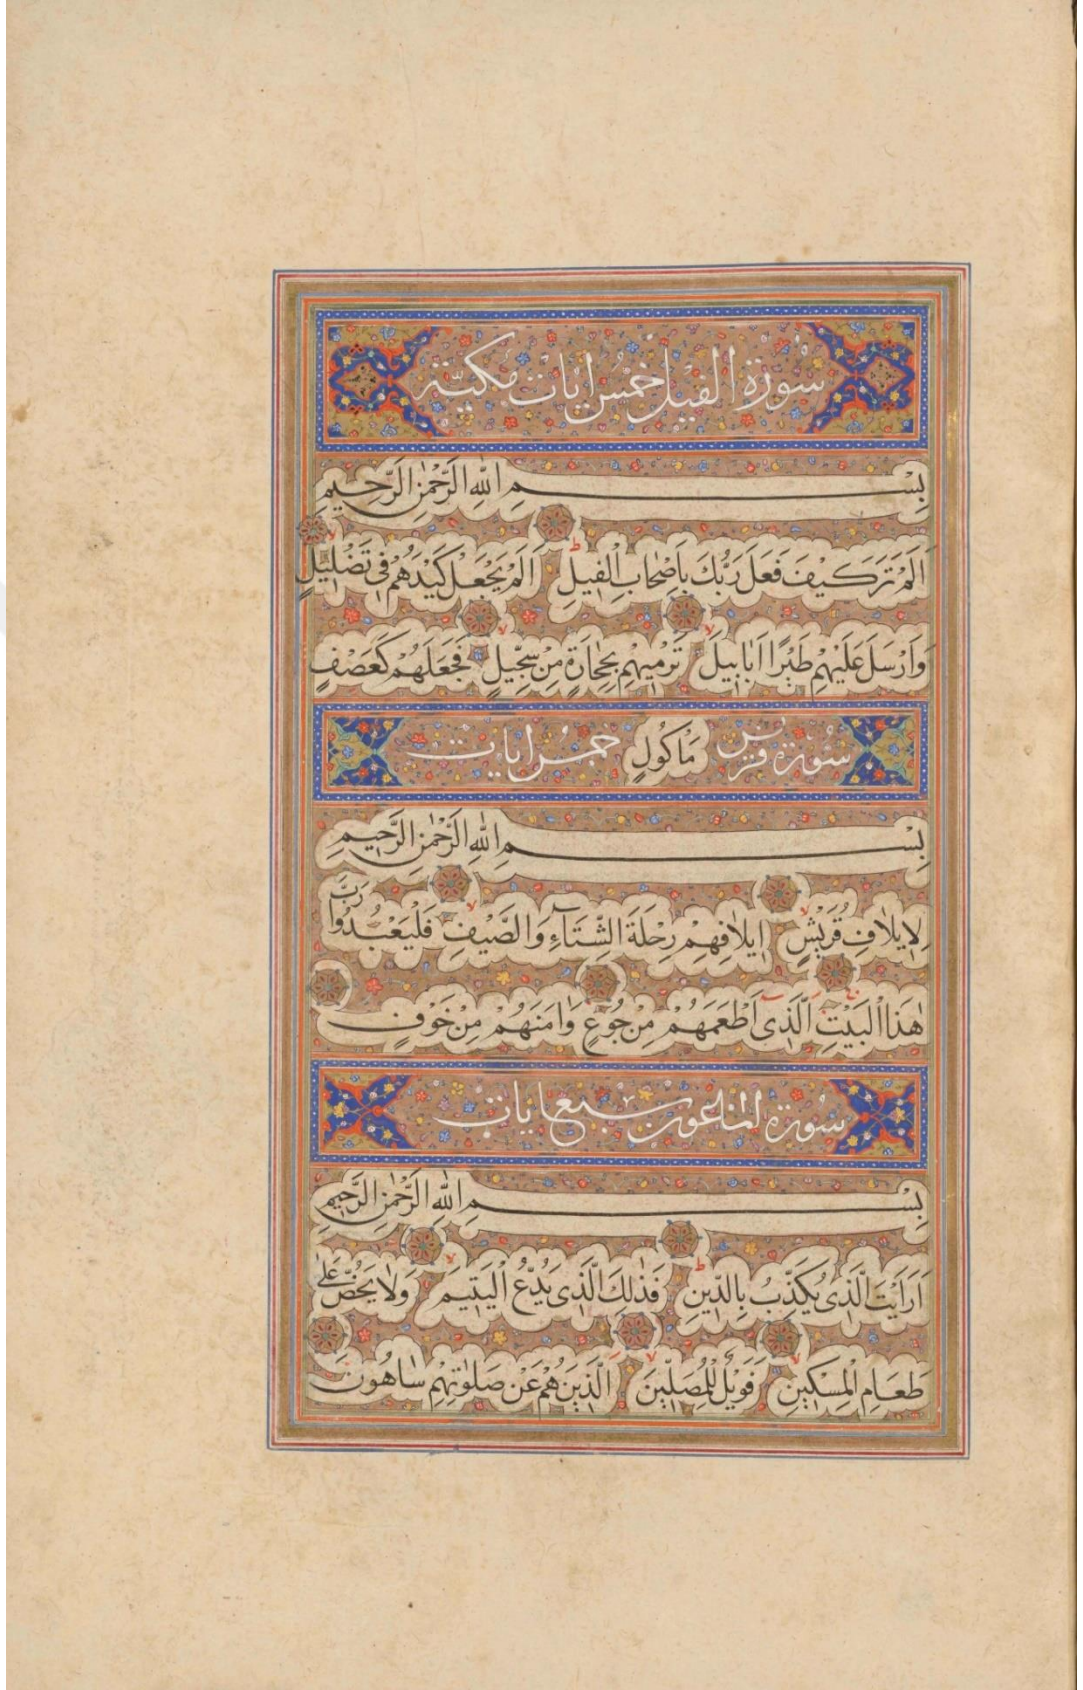 سورة الفيل خمس ايات مكية
بِسْمِ اللهِ الرَّحْمٰنِ الرَّحِيمِ
اَلَمْ تَرَ كَيْفَ فَعَلَ رَبُّكَ بِاَصْحَابِ الْفِيلِ اَلَمْ يَجْعَلْ كَيْدَهُمْ فِي تَضْلِيلٍ
وَاَرْسَلَ عَلَيْهِمْ طَيْرًا اَبَابِيلَ تَرْمِيهِمْ بِحِجَارَةٍ مِنْ سِجِّيلٍ فَجَعَلَهُمْ كَعَصْفٍ
سورة قريش مَاْكُولٍ خمس ايات
بِسْمِ اللهِ الرَّحْمٰنِ الرَّحِيمِ
لِاِيلَافِ قُرَيْشٍ اِيلَافِهِمْ رِحْلَةَ الشِّتَآءِ وَالصَّيْفِ فَلْيَعْبُدُوا رَبَّ
هٰذَا الْبَيْتِ الَّذِي اَطْعَمَهُمْ مِنْ جُوعٍ وَاٰمَنَهُمْ مِنْ خَوْفٍ
سورة الماعون سبع ايات
بِسْمِ اللهِ الرَّحْمٰنِ الرَّحِيمِ
اَرَاَيْتَ الَّذِي يُكَذِّبُ بِالدِّينِ فَذٰلِكَ الَّذِي يَدُعُّ الْيَتِيمَ وَلَا يَحُضُّ عَلٰى
طَعَامِ الْمِسْكِينِ فَوَيْلٌ لِلْمُصَلِّينَ الَّذِينَ هُمْ عَنْ صَلٰوتِهِمْ سَاهُونَ